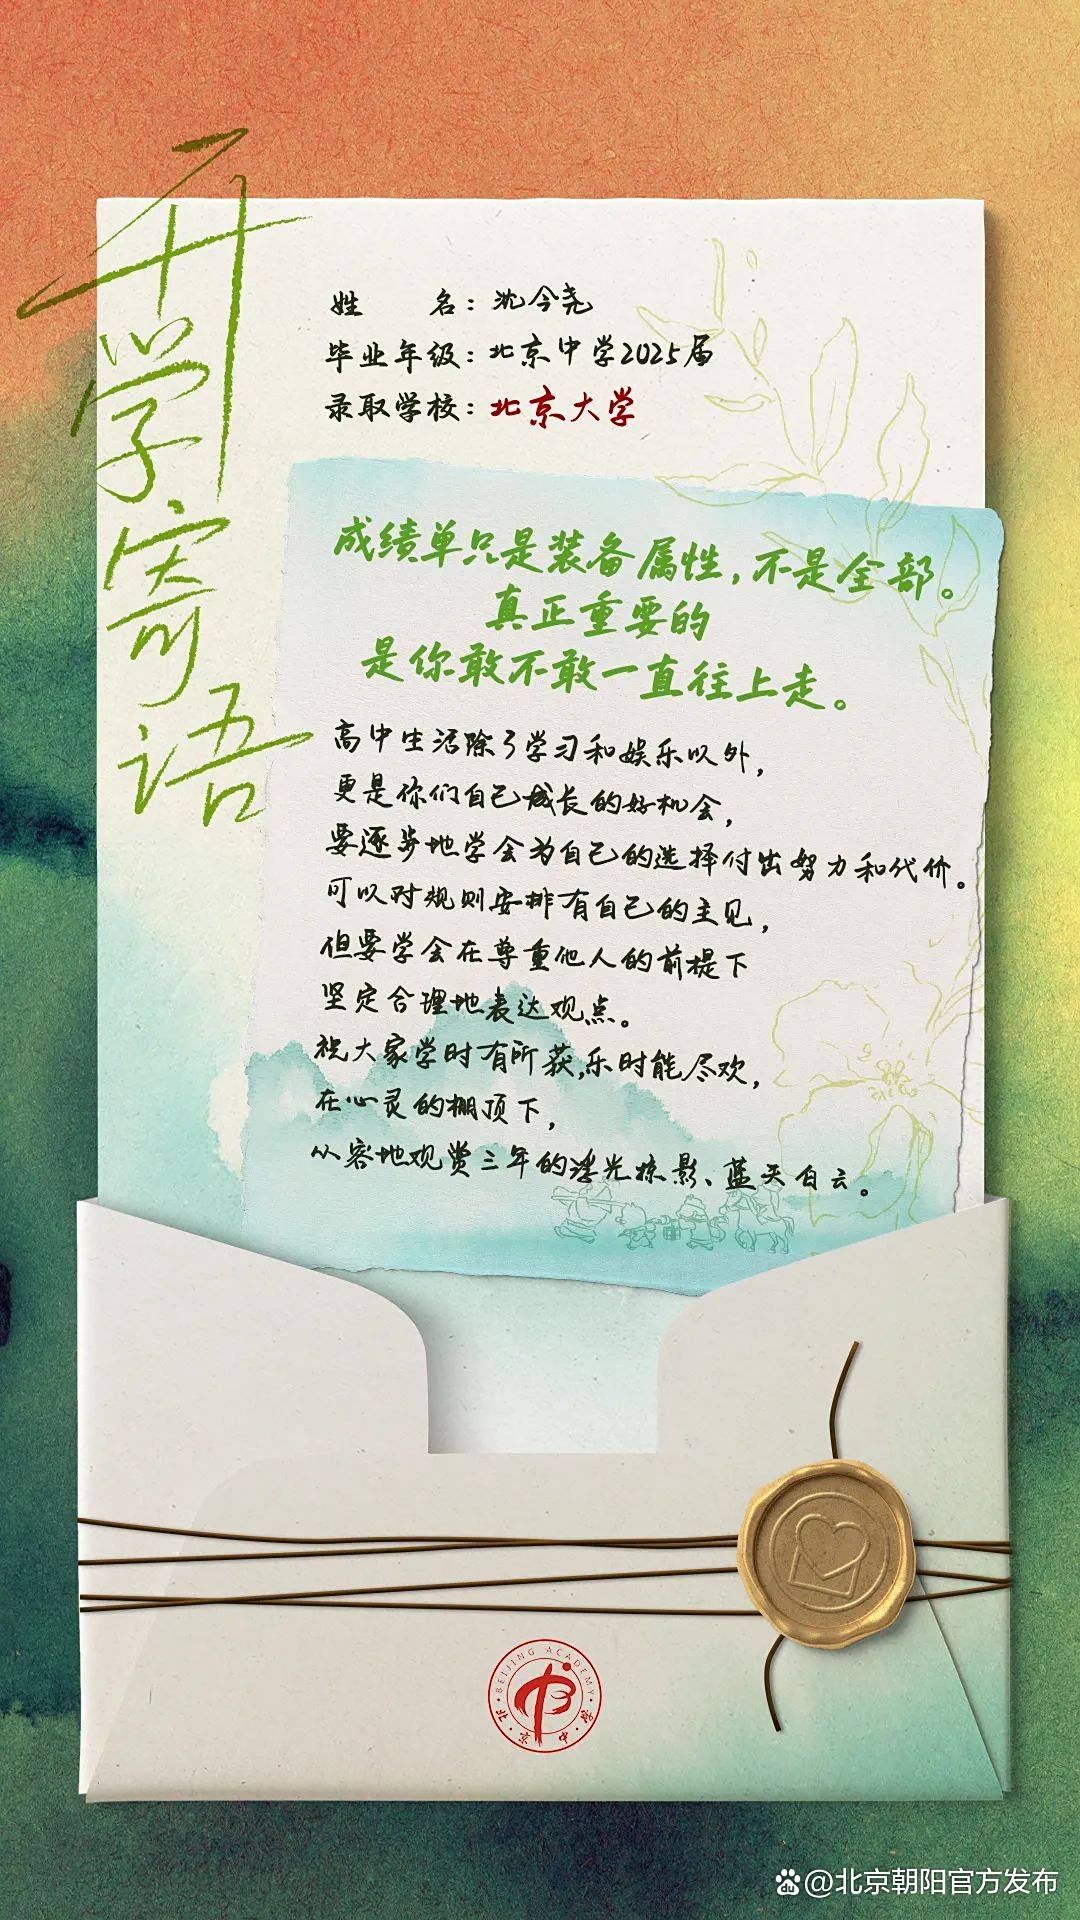 开学寄语
姓 名：沈今尧
毕业年级：北京中学2025届
录取学校：北京大学
成绩单只是装备属性，不是全部。
真正重要的
是你敢不敢一直往上走。
高中生活除了学习和娱乐以外，
更是你们自己成长的好机会，
要逐步地学会为自己的选择付出努力和代价。
可以对规则安排有自己的主见，
但要学会在尊重他人的前提下
坚定合理地表达观点。
祝大家学时有所获,乐时能尽欢，
在心灵的棚顶下，
从容地观赏三年的浮光掠影、蓝天白云。
BEIJING ACADEMY
北京中学
@北京朝阳官方发布